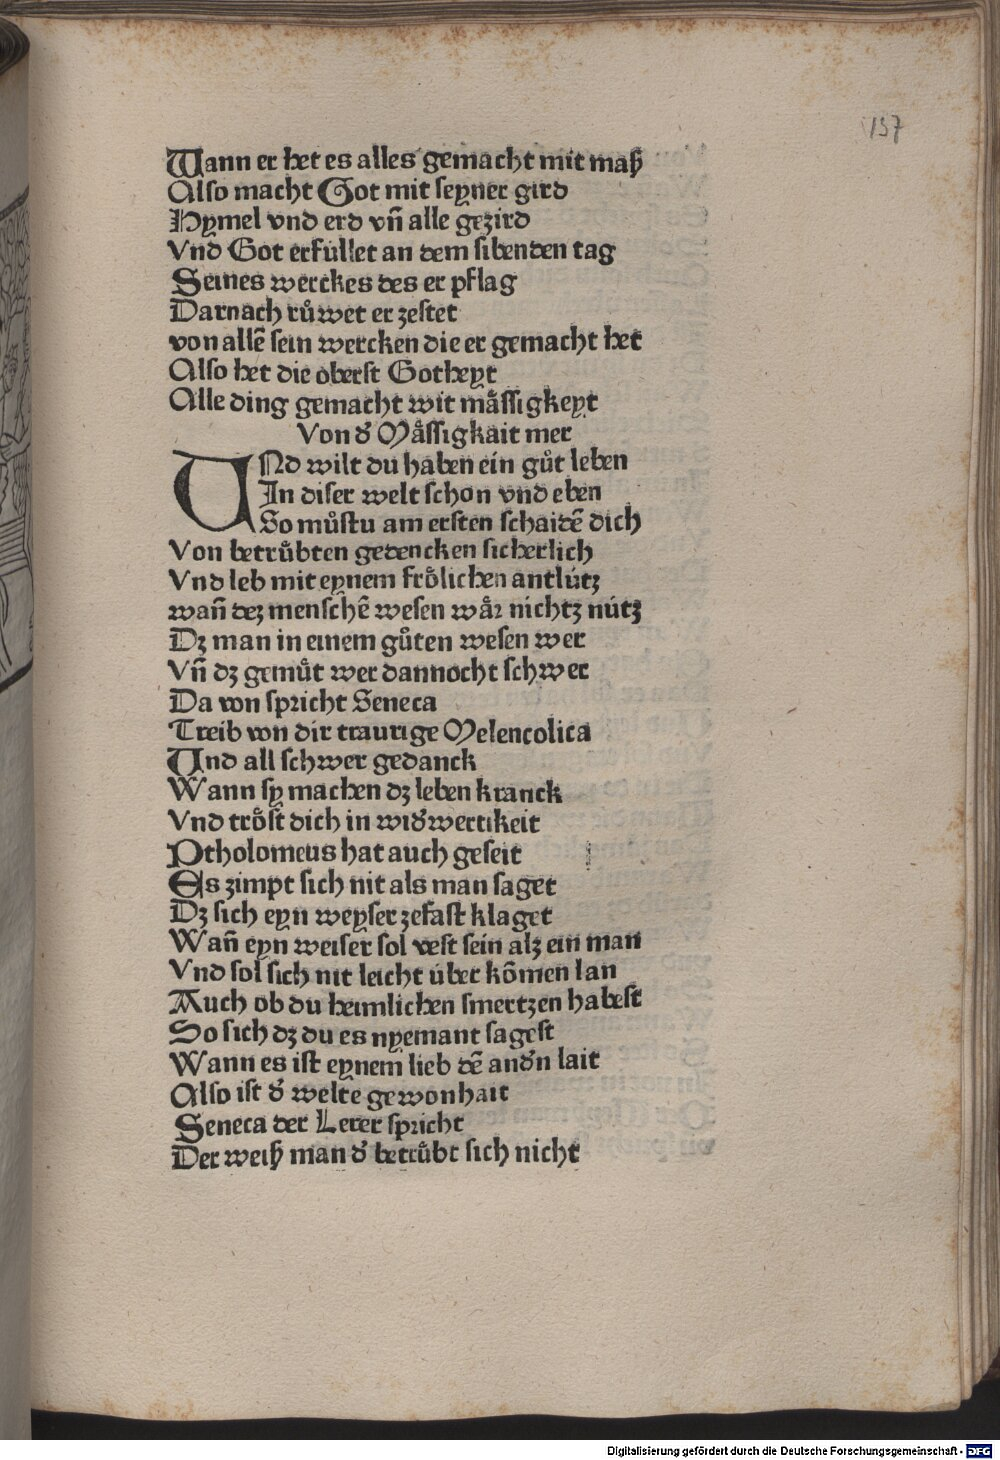 137
Wann er het es alles gemacht mit maß
Also macht Got mit seyner gird
Hymel vnd erd vñ alle gezird
Vnd Got erfúllet an dem sibenden tag
Seines werckes des er pflag
Darnach růwet er zestet
von allē sein wercken die er gemacht het
Also het die oberst Gotheyt
Alle ding gemacht wit mässigkeyt
Von d̕ Mässigkait mer
UNd wilt du haben ein gůt leben
In diser welt schon vnd eben
So můstu am ersten schaidē dich
Von betrůbten gedencken sicherlich
Vnd leb mit eynem frölichen antlútz
wañ dez menschē wesen wär nichtz nútz
Dz man in einem gůten wesen wer
Vñ dz gemůt wer dannocht schwer
Da von spricht Seneca
Treib von dir traurige Melencolica
Und all schwer gedanck
Wann sy machen dz leben kranck
Vnd tröst dich in wid̕wertikeit
Ptholomeus hat auch geseit
Es zimpt sich nit als man saget
Dz sich eyn weyser zefast klaget
Wañ eyn weiser sol vest sein alz ein man
Vnd sol sich nit leicht úber kōmen lan
Auch ob du heimlichen smertzen habest
So sich dz du es nyemant sagest
Wann es ist eynem lieb dē and̕n lait
Also ist d̕ welte gewonhait
Seneca der Lerer spricht
Der weiß man d̕ betrůbt sich nicht
Digitalisierung gefördert durch die Deutsche Forschungsgemeinschaft - DFG